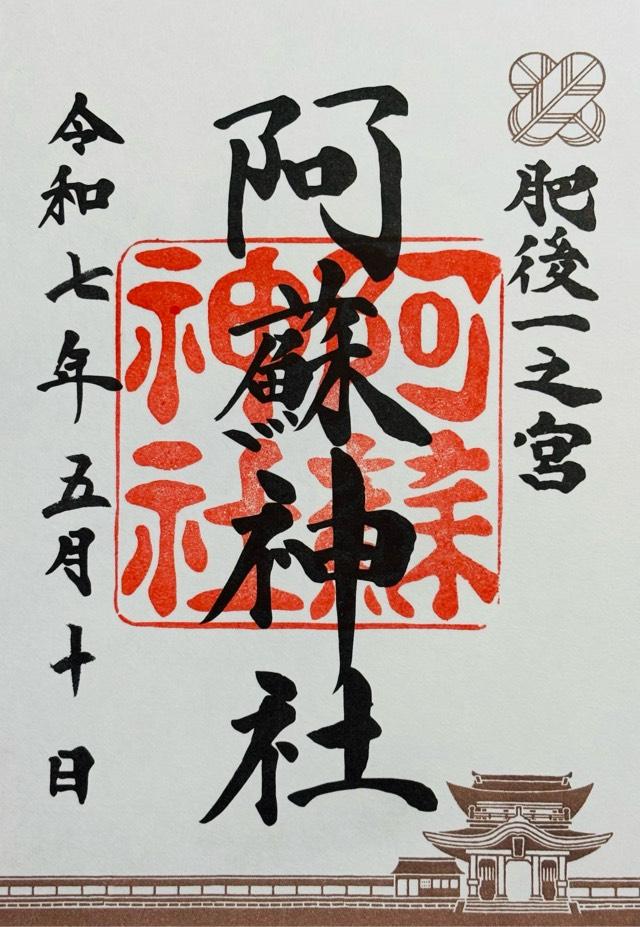 肥後一之宮
阿蘇神社
阿蘇
神社
令和七年五月十日